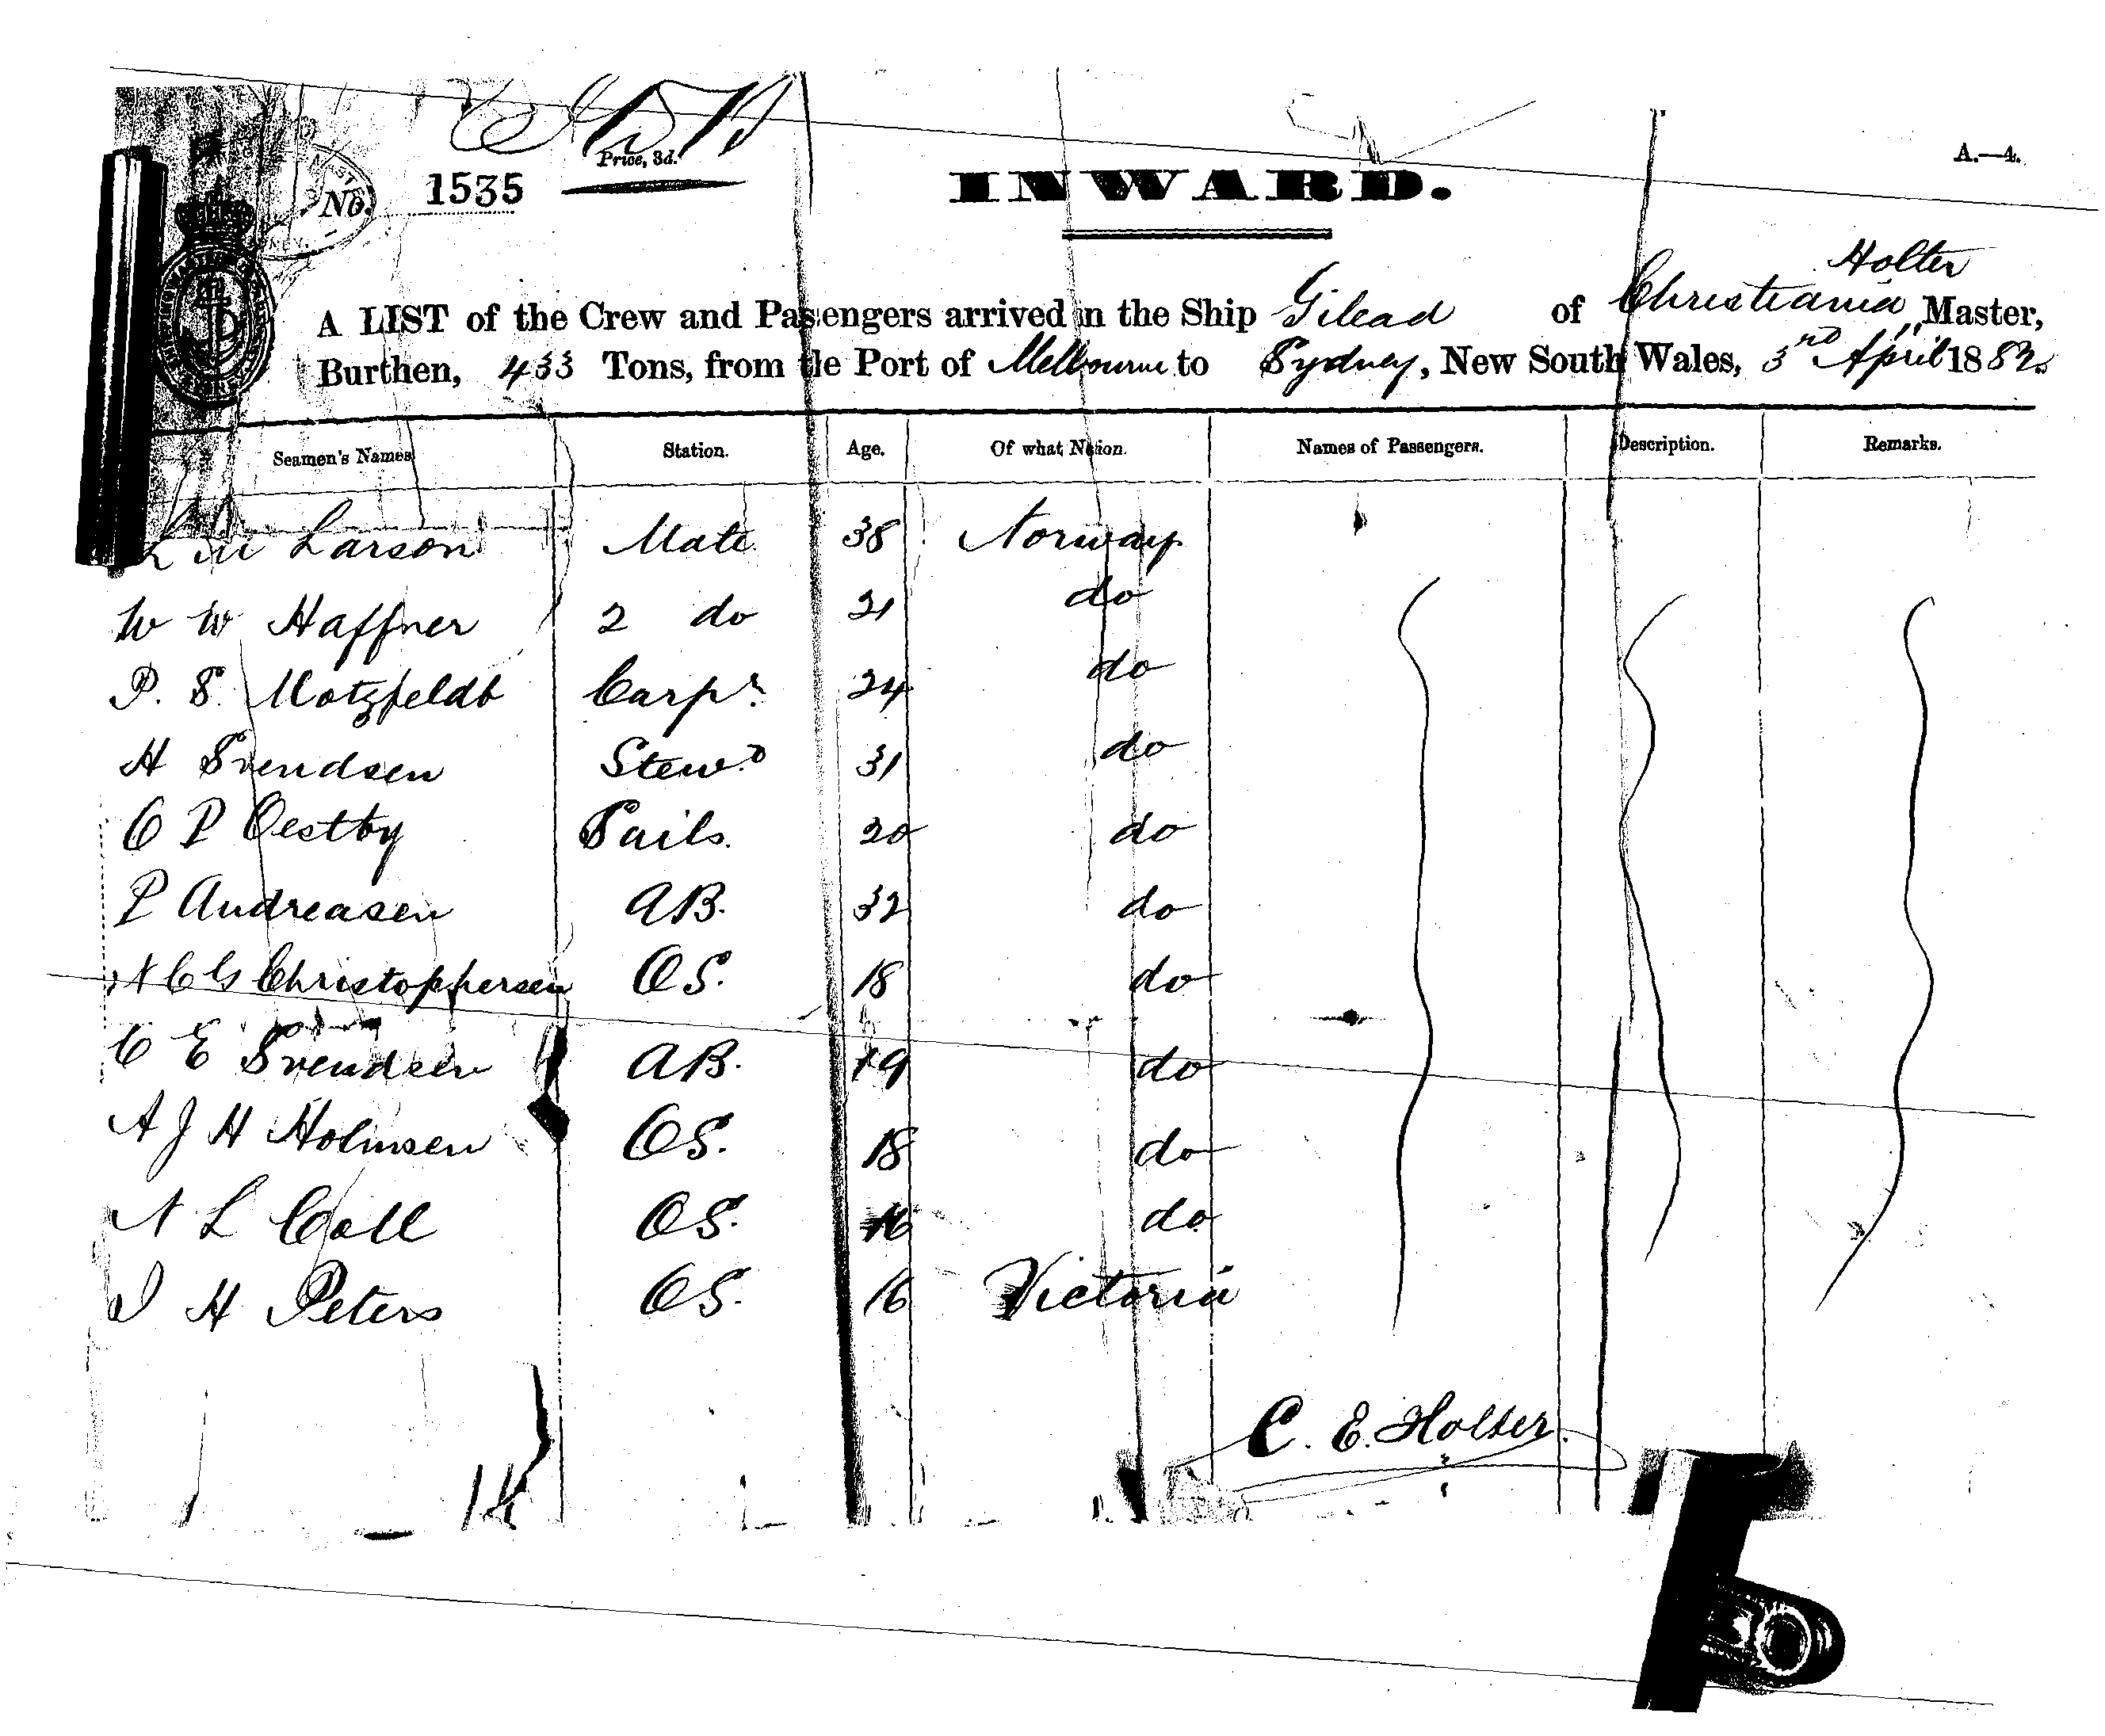 Price, 3d.
A.—4.
No. 1535
INWARD.
Holter
A LIST of the Crew and Passengers arrived in the Ship Gilead of Christiania, Master,
Burthen, 433 Tons, from the Port of Melbourne to Sydney, New South Wales, 3rd April 1882
Seamen's Names Station. Age. Of what Nation. Names of Passengers. Description. Remarks.
L M Larson Mate 38 Norway
W W Haffner 2 do 21 do
P. S. Motzfeldt Carpr. 24 do
H Svendsen Stewd 31 do
C P Oestby Sails. 20 do
P Andreasen AB. 32 do
N C G Christophersen OS. 18 do
C E Svendsen AB. 19 do
A J H Holmsen OS. 18 do
N L Coll OS. 16 do
J H Peters OS. 16 Victoria
C. E. Holter.